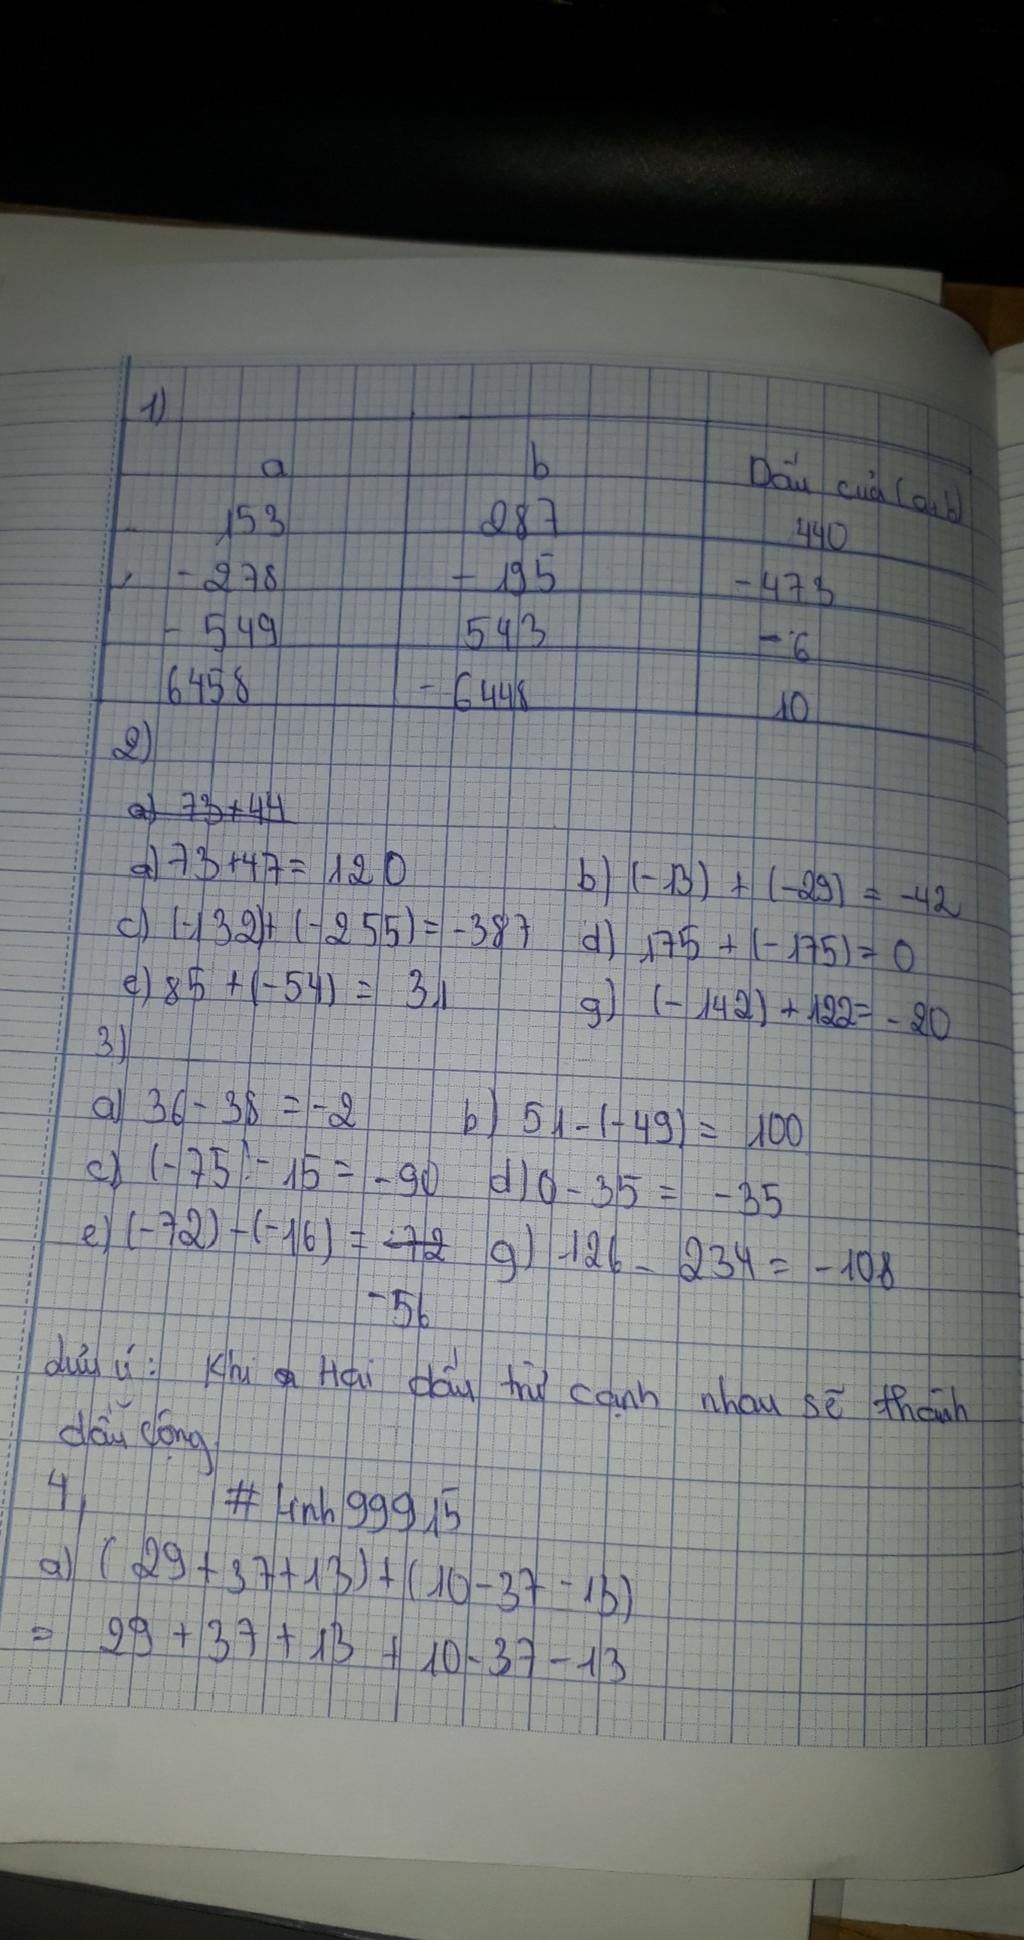 1)
a b Dấu của (a+b)
153 287 440
- 278 - 195 - 473
- 549 543 - 6
6458 - 6448 10
2)
a) 73+44
a) 73+47= 120 b) (-13) + (-29) = -42
c) (-132)+(-255)=-387 d) 175 + (-175)= 0
e) 85 +(-54) = 31 g) (-142)+122=-20
3)
a) 36-38 =-2 b) 51-(-49)= 100
c) (-75)-15=-90 d) 0-35= -35
e) (-72)-(-16)= -72 g) 126- 234= -108
-56
chú ý: Khi Hai dấu trừ cạnh nhau sẽ thành
dấu cộng
4, #linh99915
a) (29+37+13)+(10-37-13)
= 29+37+13+10-37-13